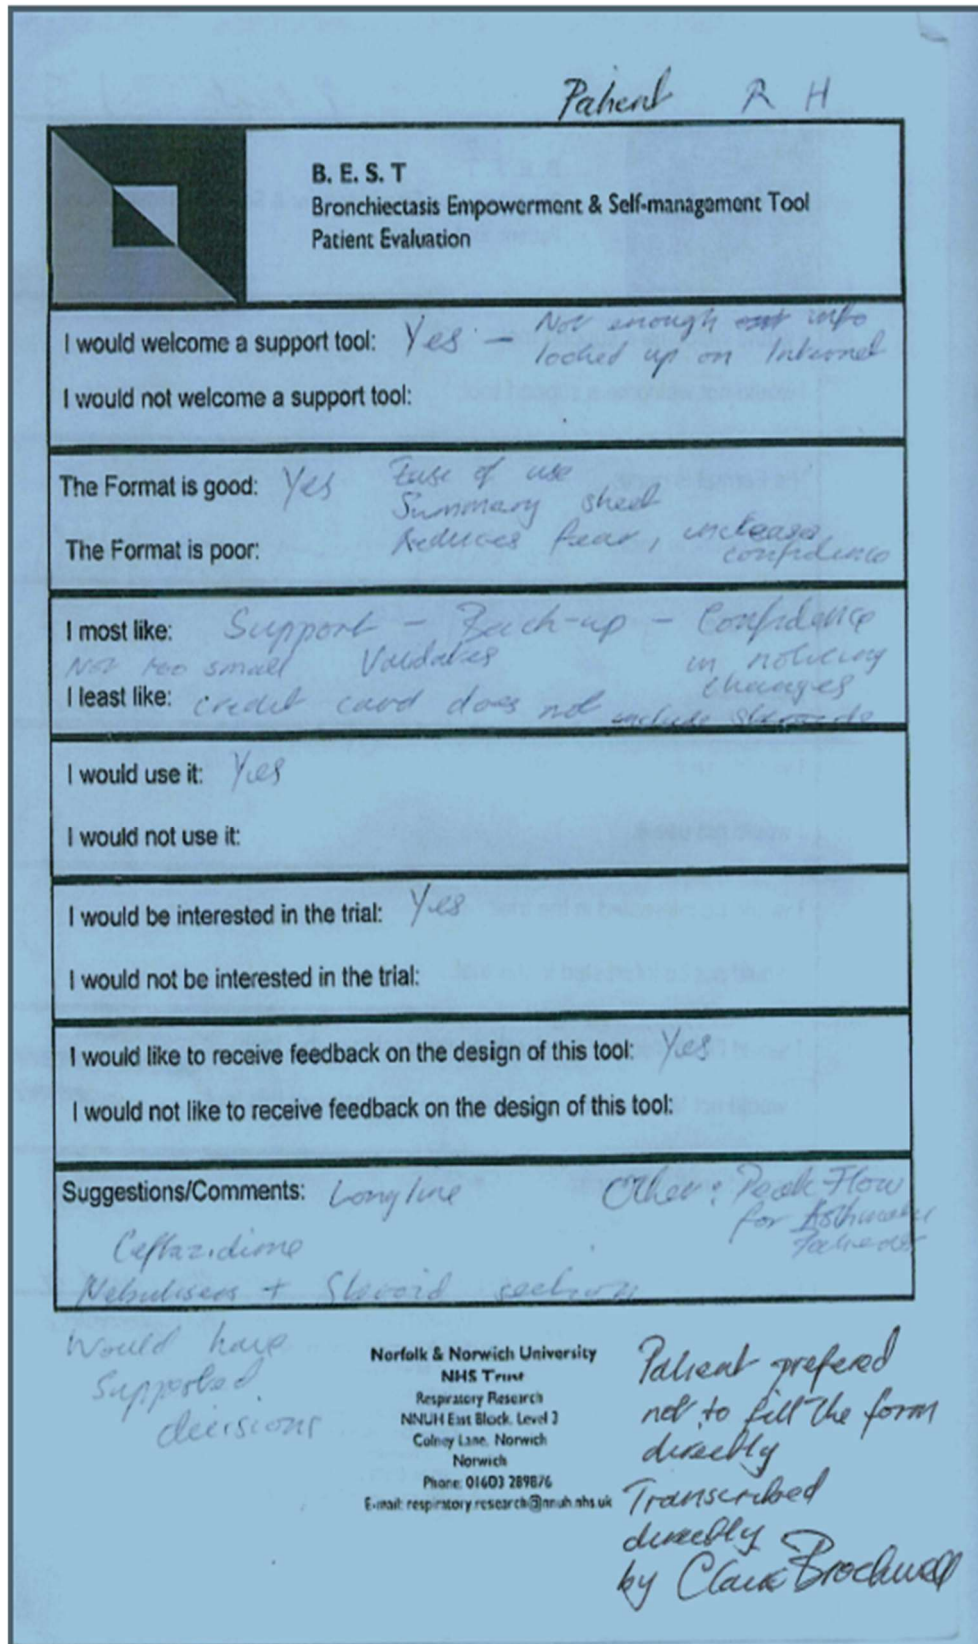 Patient R H
B. E. S. T
Bronchiectasis Empowerment & Self-management Tool
Patient Evaluation
I would welcome a support tool: Yes - Not enough info
looked up on Internet
I would not welcome a support tool:
The Format is good: Yes Ease of use
Summary sheet
The Format is poor: Reduces fear, increase
confidence
I most like: Support - Back-up - Confidence
Not too small Validates in noticing
changes
I least like: credit card does not include steroids
I would use it: Yes
I would not use it:
I would be interested in the trial: Yes
I would not be interested in the trial:
I would like to receive feedback on the design of this tool: Yes
I would not like to receive feedback on the design of this tool:
Suggestions/Comments: Longline Other: Peak Flow
for Asthmatic
Ceftazidime
Nebulisers + Steroid section
Would have
supported
decisions
Norfolk & Norwich University
NHS Trust
Respiratory Research
NNUH East Block, Level 3
Colney Lane, Norwich
Norwich
Phone: 01603 289876
E-mail: respiratory.research@nnuh.nhs.uk
Patient prefered
not to fill the form
directly
Transcribed
directly
by Clare Brockwell